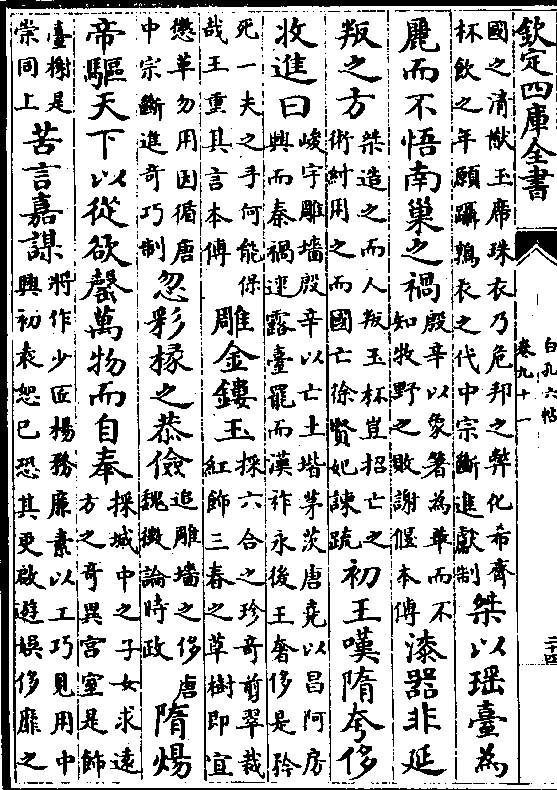 欽定四庫全書
白孔六帖
卷九十一
二十四
國之清猷玉席珠衣乃危邦之弊化希齊
杯飲之年願躡鶉衣之代中宗斷進獻制
桀以瑶臺為
麗而不悟南巢之禍
殷辛以象箸為華而不
知牧野之敗謝偃本傳
漆器非延
叛之方
桀造之而人叛玉杯豈招亡之
術紂用之而國亡徐賢妃諫疏
初王嘆隋夸侈
收進曰
峻宇雕墻殷辛以亡土堦茅茨唐堯以昌阿房
興而秦禍速露臺罷而漢祚永後王奢侈是矜
死一夫之手何能保
哉王重其言本傳
雕金鏤玉
採六合之珍奇剪翠裁
紅飾三春之草樹即宜
懲革勿用因循唐
中宗斷進奇巧制
忽彩椽之恭儉
追雕墻之侈唐
魏徵論時政
隋煬
帝驅天下以從欲罄萬物而自奉
採城中之子女求遠
方之奇異宮室是飾
臺榭是
崇同上
苦言嘉謀
將作少匠楊務廉素以工巧見用中
興初袁恕已恐其更啟遊娛侈靡之